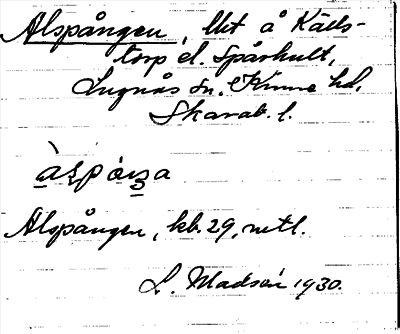 Alspången, litet å Källs-
torp el. Spårhult,
Lugnås sn. Kinne hd.
Skarab. l.
àspɑŋa
Alspången, kb. 29, netl.
L. Madsén 1930.